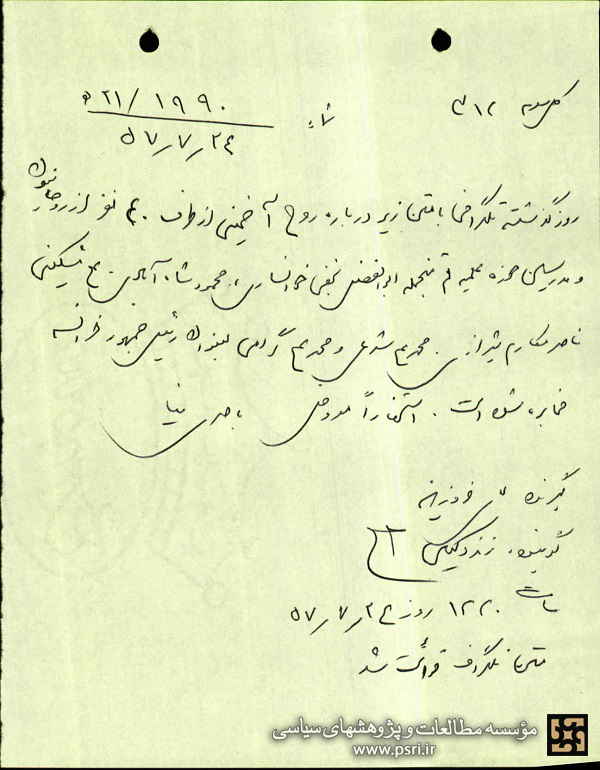 کل سوم ۳۱۲
شماره ۲۱/۱۹۹۰ ھ
۵۷/۷/۲۴
روز گذشته تلگرافی با متن زیر درباره روح آ خمینی از طرف ۴۰ نفر از روحانیون
و مدرسین حوزه علمیه قم منجمله ابوالفضل نجفی خوانساری، محمود شاه آبادی، علی مشکینی
ناصر مکارم شیرازی، محمد علی شرعی و محمد علی گرامی بعنوان رئیس جمهور فرانسه
مخابره شده است. استحضاراً معروض
گیرنده
گوینده: زندوکیلی
ساعت ۱۲۲۰ روز ۵۷/۷/۲۴
متن تلگراف قرائت شد
مؤسسه مطالعات و پژوهشهای سیاسی
www.psri.ir